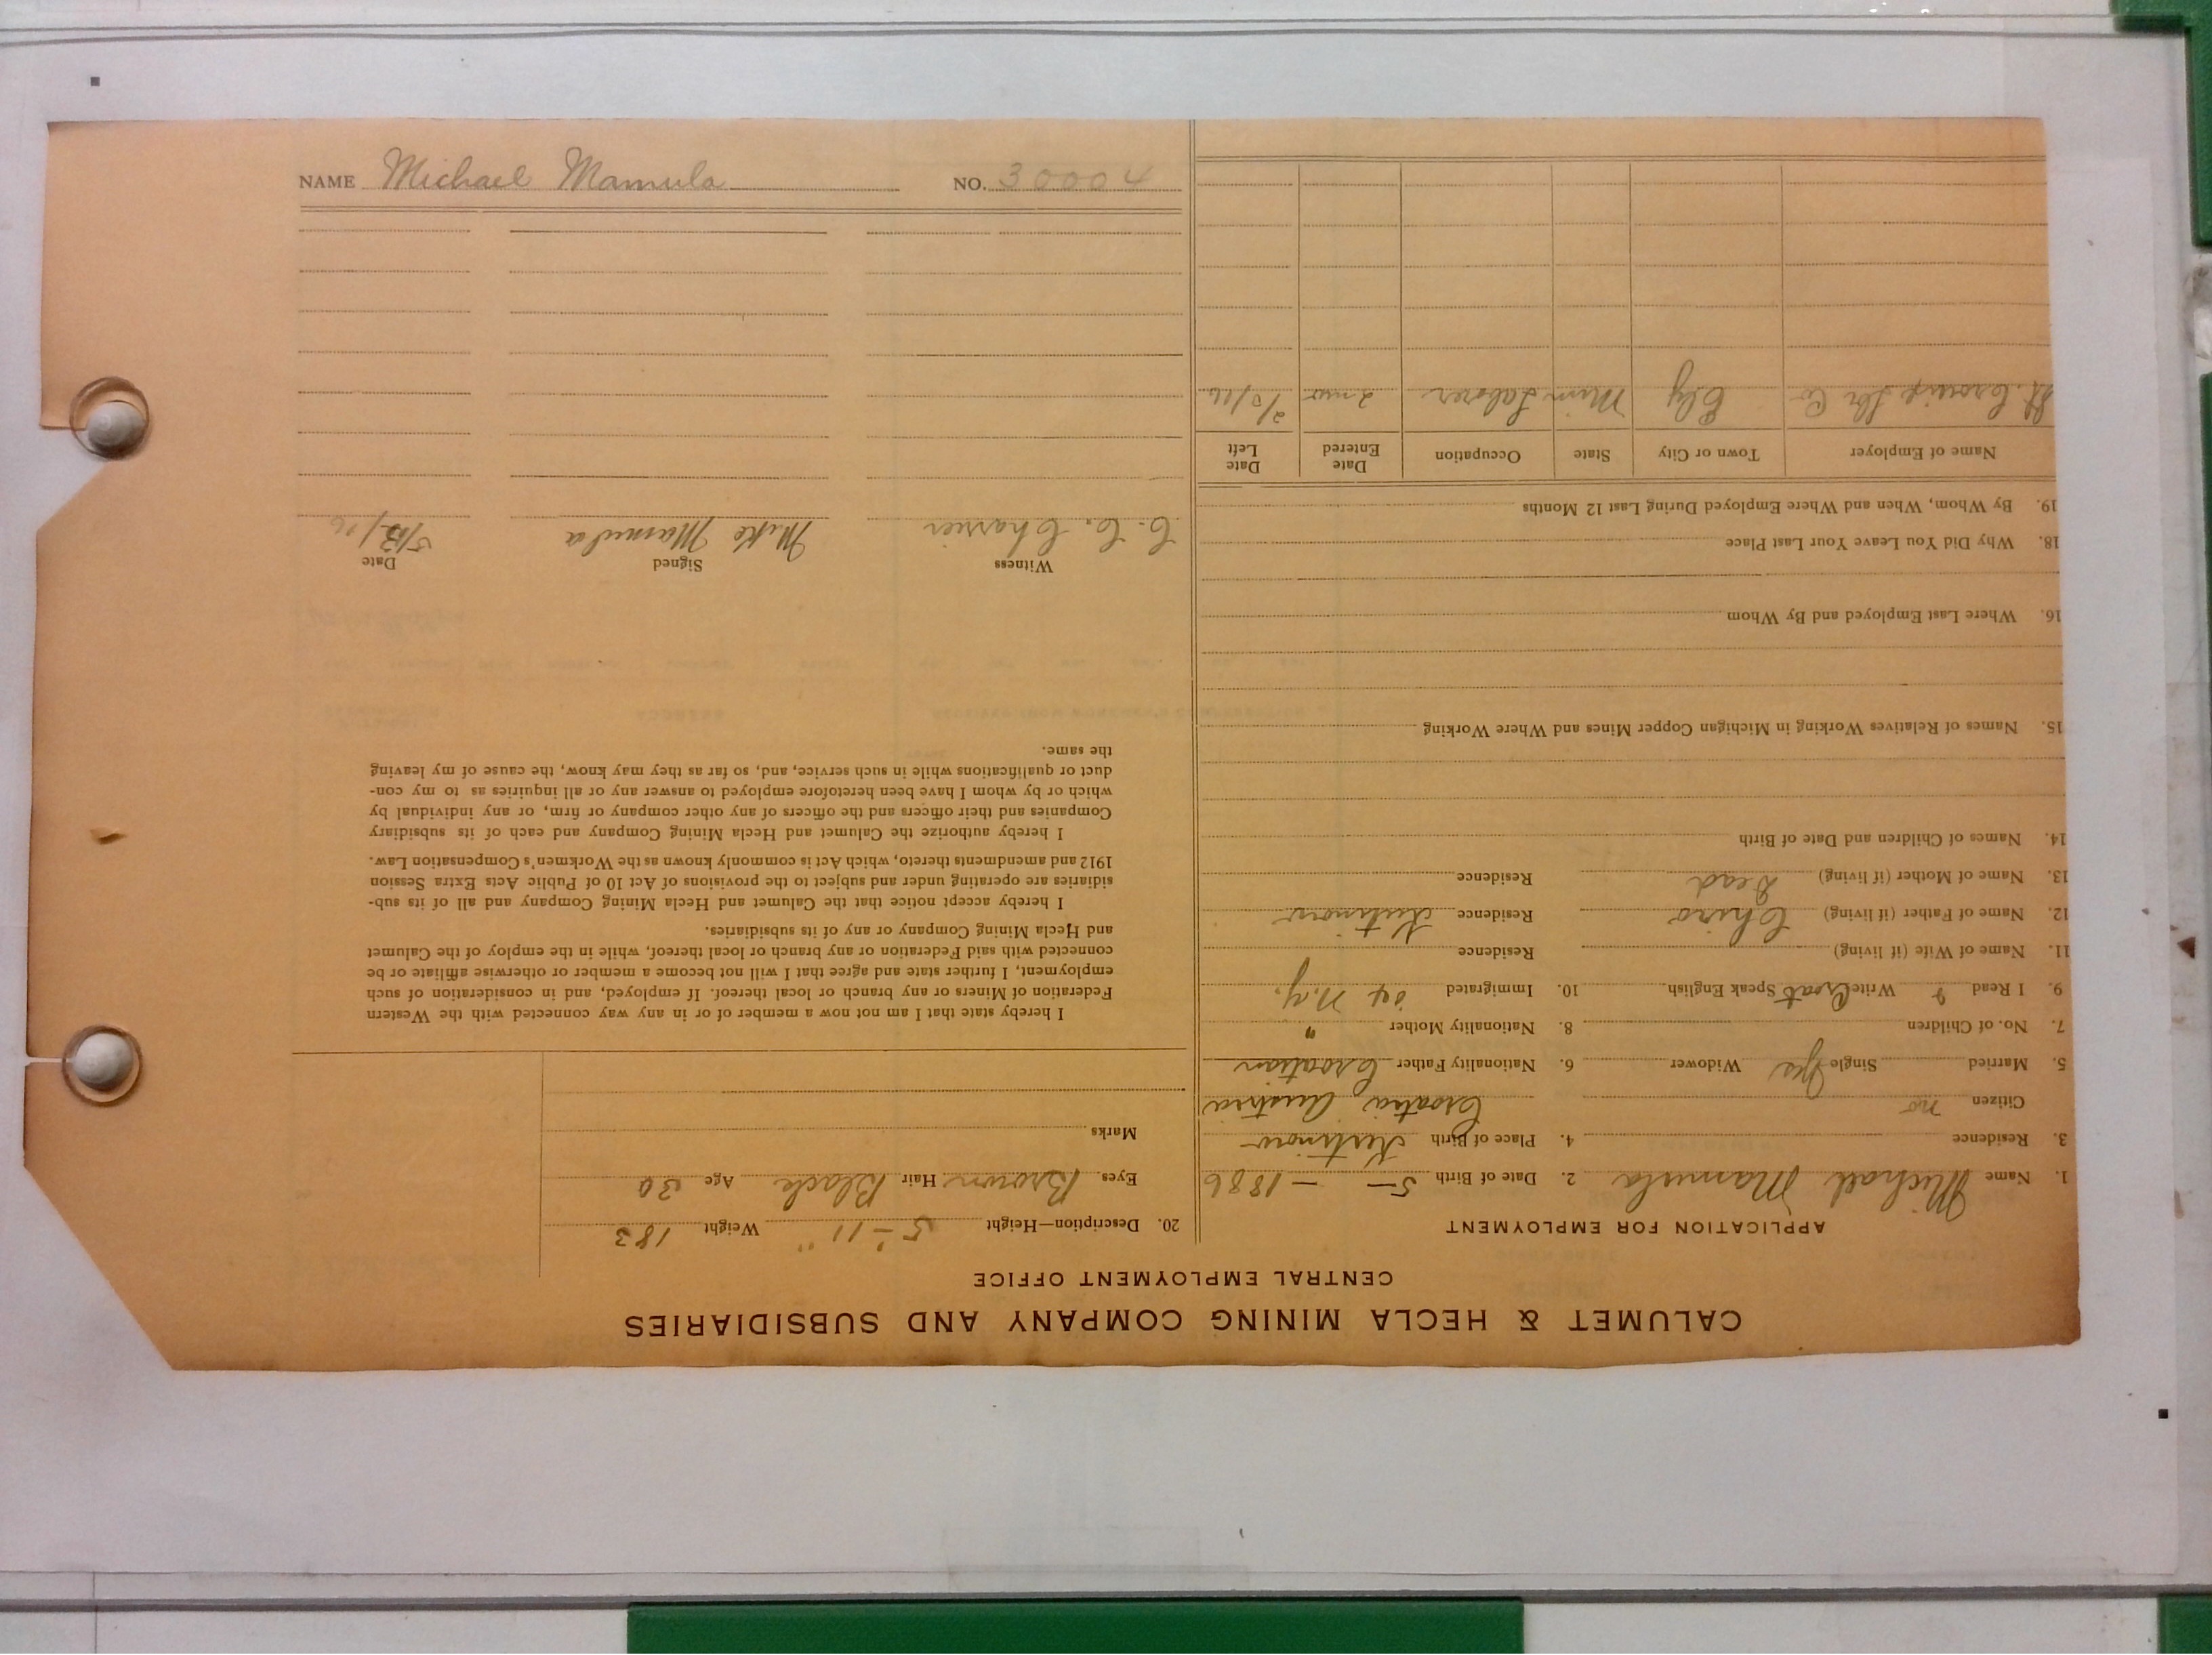 NAME Michael Mamula NO. 30004
CALUMET & HECLA MINING COMPANY AND SUBSIDIARIES
CENTRAL EMPLOYMENT OFFICE
APPLICATION FOR EMPLOYMENT
1. Name Michael Mamula 2. Date of Birth 5 — — 1886
3. Residence 4. Place of Birth
Citizen no Croatia Austria
5. Married Single Yes Widower 6. Nationality Father Croatian
7. No. of Children 8. Nationality Mother "
9. I Read & Write Croat Speak English. 10. Immigrated N.Y.
11. Name of Wife (if living) Residence
12. Name of Father (if living) Residence
13. Name of Mother (if living) Dead Residence
14. Names of Children and Date of Birth
15. Names of Relatives Working in Michigan Copper Mines and Where Working
16. Where Last Employed and By Whom
18. Why Did You Leave Your Last Place
19. By Whom, When and Where Employed During Last 12 Months
Name of Employer Town or City State Occupation Date Entered Date Left
St. Croix Co Ely Minn Laborer 2 mos
20. Description—Height 5' - 11" Weight 183
Eyes Brown Hair Black Age 30
Marks
I hereby state that I am not now a member of or in any way connected with the Western
Federation of Miners or any branch or local thereof. If employed, and in consideration of such
employment, I further state and agree that I will not become a member or otherwise affiliate or be
connected with said Federation or any branch or local thereof, while in the employ of the Calumet
and Hecla Mining Company or any of its subsidiaries.
I hereby accept notice that the Calumet and Hecla Mining Company and all of its sub-
sidiaries are operating under and subject to the provisions of Act 10 of Public Acts Extra Session
1912 and amendments thereto, which Act is commonly known as the Workmen's Compensation Law.
I hereby authorize the Calumet and Hecla Mining Company and each of its subsidiary
Companies and their officers and the officers of any other company or firm, or any individual by
which or by whom I have been heretofore employed to answer any or all inquiries as to my con-
duct or qualifications while in such service, and, so far as they may know, the cause of my leaving
the same.
Witness Signed Date
C. C. Charier Mike Mamula